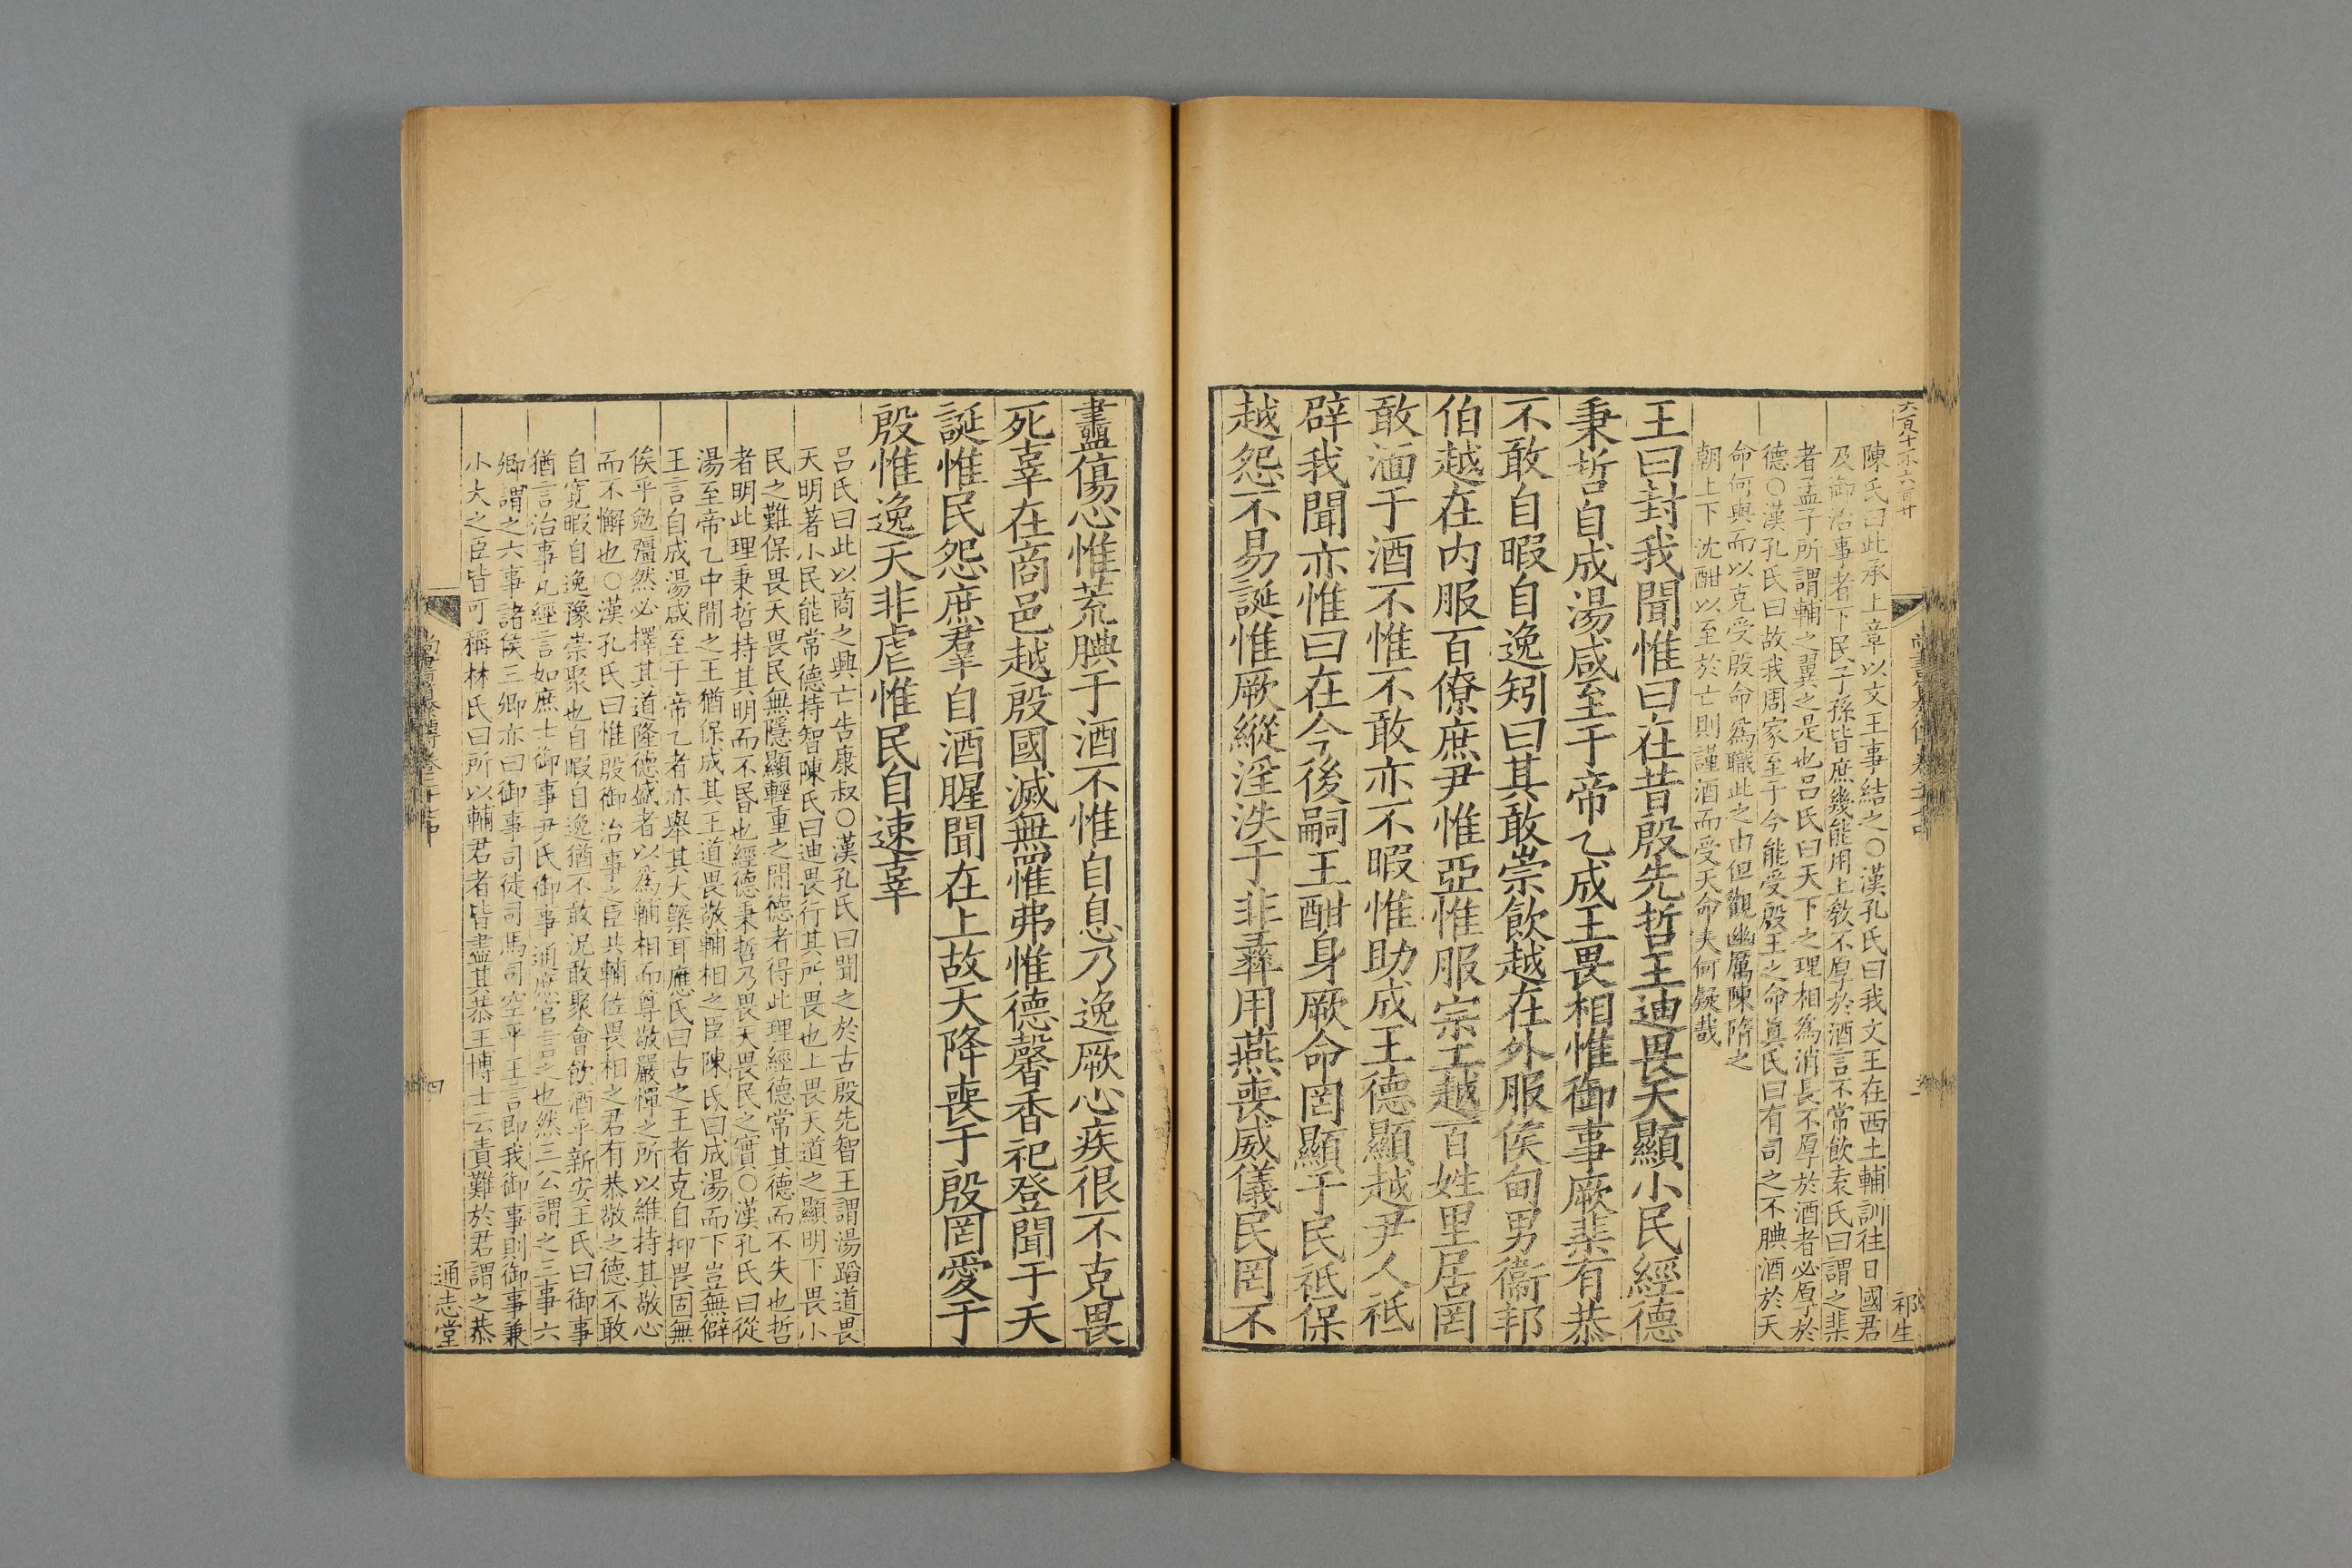 陳氏曰此承上章以文王事結之○漢孔氏曰我文王在西土輔訓往日國君
及御治事者下民子孫皆庶幾能用上敎不厚於酒言不常飲袁氏曰謂之棐
者孟子所謂輔之翼之是也吕氏曰天下之理相為消長不厚於酒者必厚於
德○漢孔氏曰故我周家至于今能受殷王之命眞氏曰有司之不腆酒於天
命何與而以克受殷命爲職此之由但觀幽厲陳隋之
朝上下沈酣以至於亡則謹酒而受天命夫何疑哉
王曰封我聞惟曰在昔殷先哲王迪畏天顯小民經德
秉哲自成湯咸至于帝乙成王畏相惟御事厥棐有恭
不敢自暇自逸矧曰其敢崇飲越在外服侯甸男衞邦
伯越在内服百僚庶尹惟亞惟服宗工越百姓里居罔
敢湎于酒不惟不敢亦不暇惟助成王德顯越尹人祗
辟我聞亦惟曰在今後嗣王酣身厥命罔顯于民祗保
越怨不易誕惟厥縱淫泆于非彝用燕喪威儀民罔不
衋傷心惟荒腆于酒不惟自息乃逸厥心疾很不克畏
死辜在商邑越殷國滅無罹弗惟德馨香祀登聞于天
誕惟民怨庶羣自酒腥聞在上故天降喪于殷罔愛于
殷惟逸天非虐惟民自速辜
吕氏曰此以商之興亡告康叔○漢孔氏曰聞之於古殷先智王謂湯蹈道畏
天明著小民能常德持智陳氏曰迪畏行其所畏也上畏天道之顯明下畏小
民之難保畏天畏民無隱顯輕重之間德者得此理經德常其德而不失也哲
者明此理秉哲持其明而不昬也經德秉哲乃畏天畏民之實○漢孔氏曰從
湯至帝乙中間之王猶保成其王道畏敬輔相之臣陳氏曰成湯而下豈無僻
王言自成湯咸至于帝乙者亦舉其大槩耳應氏曰古之王者克自抑畏固無
俟乎勉彊然必擇其道隆德盛者以爲輔相而尊敬嚴憚之所以維持其敬心
而不懈也○漢孔氏曰惟殷御治事之臣共輔佐畏相之君有恭敬之德不敢
自寛暇自逸豫崇聚也自暇自逸猶不敢況敢聚會飲酒乎新安王氏曰御事
猶言治事凡經言如庶士御事尹氏御事通庶官言之也然三公謂之三事六
卿謂之六事諸侯三卿亦曰御事司徒司馬司空平王言即我御事則御事兼
小大之臣皆可稱林氏曰所以輔君者皆盡其恭王博士云責難於君謂之恭
四
通志堂
祁生